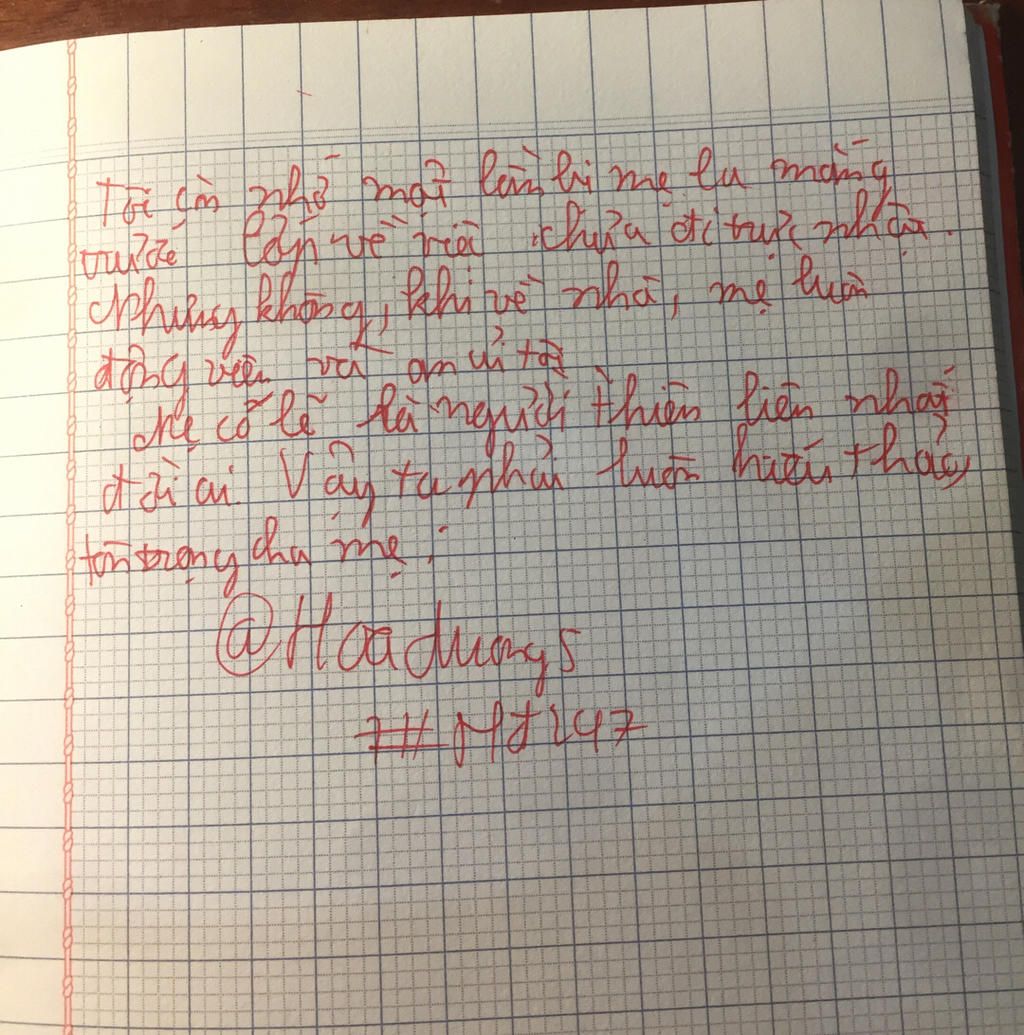 Tôi còn nhớ một lần bị mẹ la mắng
trước lớp về mà chưa đi trực nhật.
Nhưng không, khi về nhà, mẹ luôn
động viên và an ủi tôi
Mẹ có lẽ là người thiên liên nhất
đời ai. Vậy ta phải luôn hiếu thảo,
tôn trọng cha mẹ.
@Hoaduong5
7#Md247